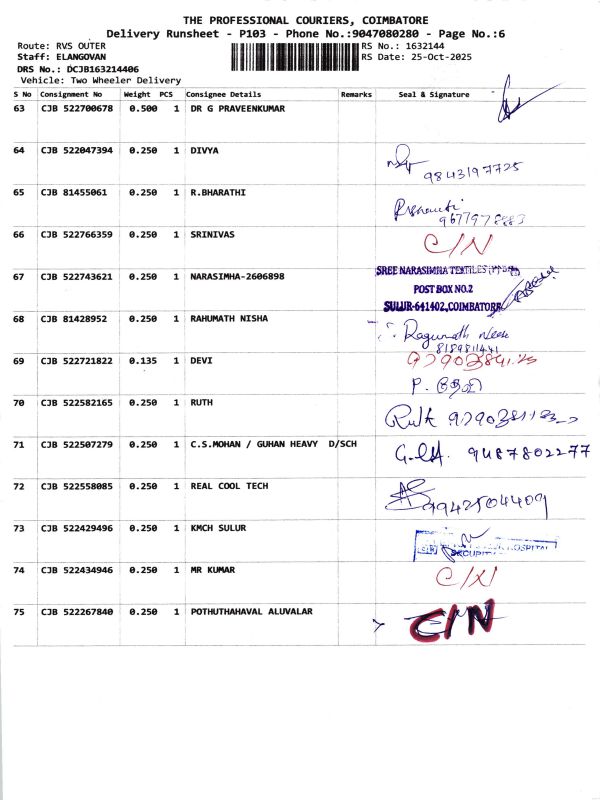 THE PROFESSIONAL COURIERS, COIMBATORE
Delivery Runsheet - P103 - Phone No.:9047080280 - Page No.:6
Route: RVS OUTER RS No.: 1632144
Staff: ELANGOVAN RS Date: 25-Oct-2025
DRS No.: DCJB163214406
Vehicle: Two Wheeler Delivery
S No Consignment No Weight PCS Consignee Details Remarks Seal & Signature
63 CJB 522700678 0.500 1 DR G PRAVEENKUMAR
64 CJB 522047394 0.250 1 DIVYA
9843197725
65 CJB 81455061 0.250 1 R.BHARATHI
66 CJB 522766359 0.250 1 SRINIVAS C/N
67 CJB 522743621 0.250 1 NARASIMHA-2606898 SREE NARASIMHA TEXTILES
POST BOX NO.2
SULUR-641402, COIMBATORE
68 CJB 81428952 0.250 1 RAHUMATH NISHA
8189811441
69 CJB 522721822 0.135 1 DEVI
P. தேவி
70 CJB 522582165 0.250 1 RUTH Ruth
71 CJB 522507279 0.250 1 C.S.MOHAN / GUHAN HEAVY D/SCH 9487802277
72 CJB 522558085 0.250 1 REAL COOL TECH
9942504409
73 CJB 522429496 0.250 1 KMCH SULUR HOSPITAL
74 CJB 522434946 0.250 1 MR KUMAR C/N
75 CJB 522267840 0.250 1 POTHUTHAHAVAL ALUVALAR C/N